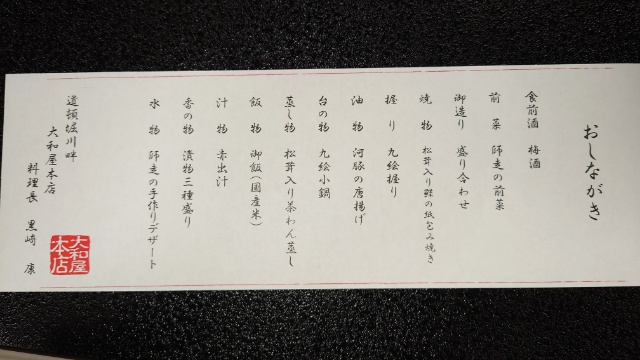 おしながき
食前酒 梅酒
前菜 師走の前菜
御造り 盛り合わせ
焼物 松茸入り鮭の紙包み焼き
握り 九絵握り
油物 河豚の唐揚げ
台の物 九絵小鍋
蒸し物 松茸入り茶わん蒸し
飯物 御飯(国産米)
汁物 赤出汁
香の物 漬物三種盛り
水物 師走の手作りデザート
道頓堀川畔
大和屋本店
料理長 黒崎 康
大和屋
本店